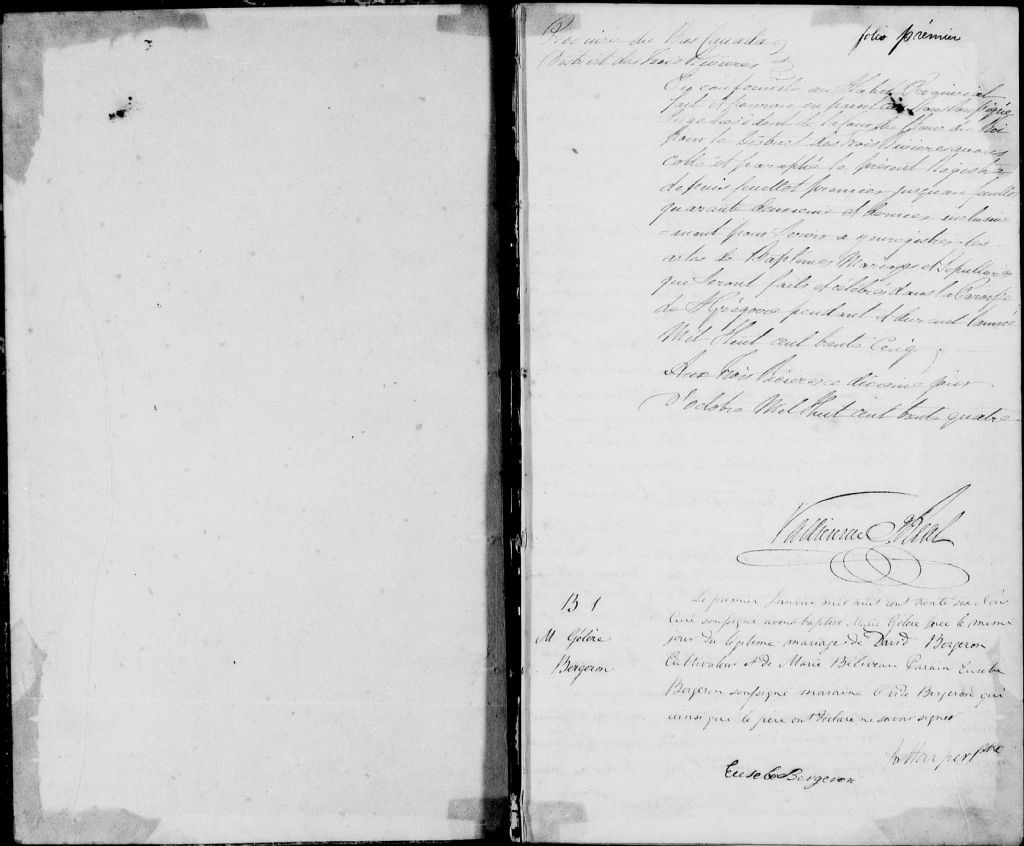 folio prémier
Province du Bas Canada
District des Trois Rivieres
En conformité au Statut Provincial
fait et pourvu en pareil cas, Nous Soussigné
Juge Résident de la Cour du Banc du Roi
pour le District des trois Rivieres avons
coté et paraphé le présent Registre
depuis feuillet premier jusqu'au feuillet
quarante deuxieme et dernier inclusive
-ment pour servir a y enregistrer les
actes de Baptêmes Mariages et Sépultures
qui seront faits et célébrés dans la Paroisse
de St Grégoire pendant et durant l'année
Mil Huit cent trente Cinq ;
Aux Trois Rivieres ce dixieme jour
d'octobre Mil Huit cent trente quatre
B 1
M Gélère
Bergeron
Le premier Janvier mil huit cent trente six Nous
Curé soussigné avons baptisé Marie Gélère née le meme
jour du légitime mariage de David Bergeron
Cultivateur et de Marie Béliveau Parain Eusebe
Bergeron soussigné maraine Bergeron qui
ainsi que le père ont déclaré ne savoir signer
Harper Ptre
Eusebe Bergeron